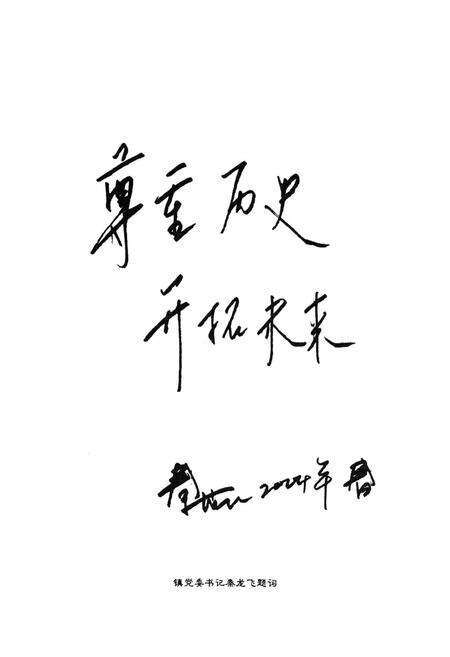 尊重历史
开拓未来
2024年春
镇党委书记秦龙飞题词